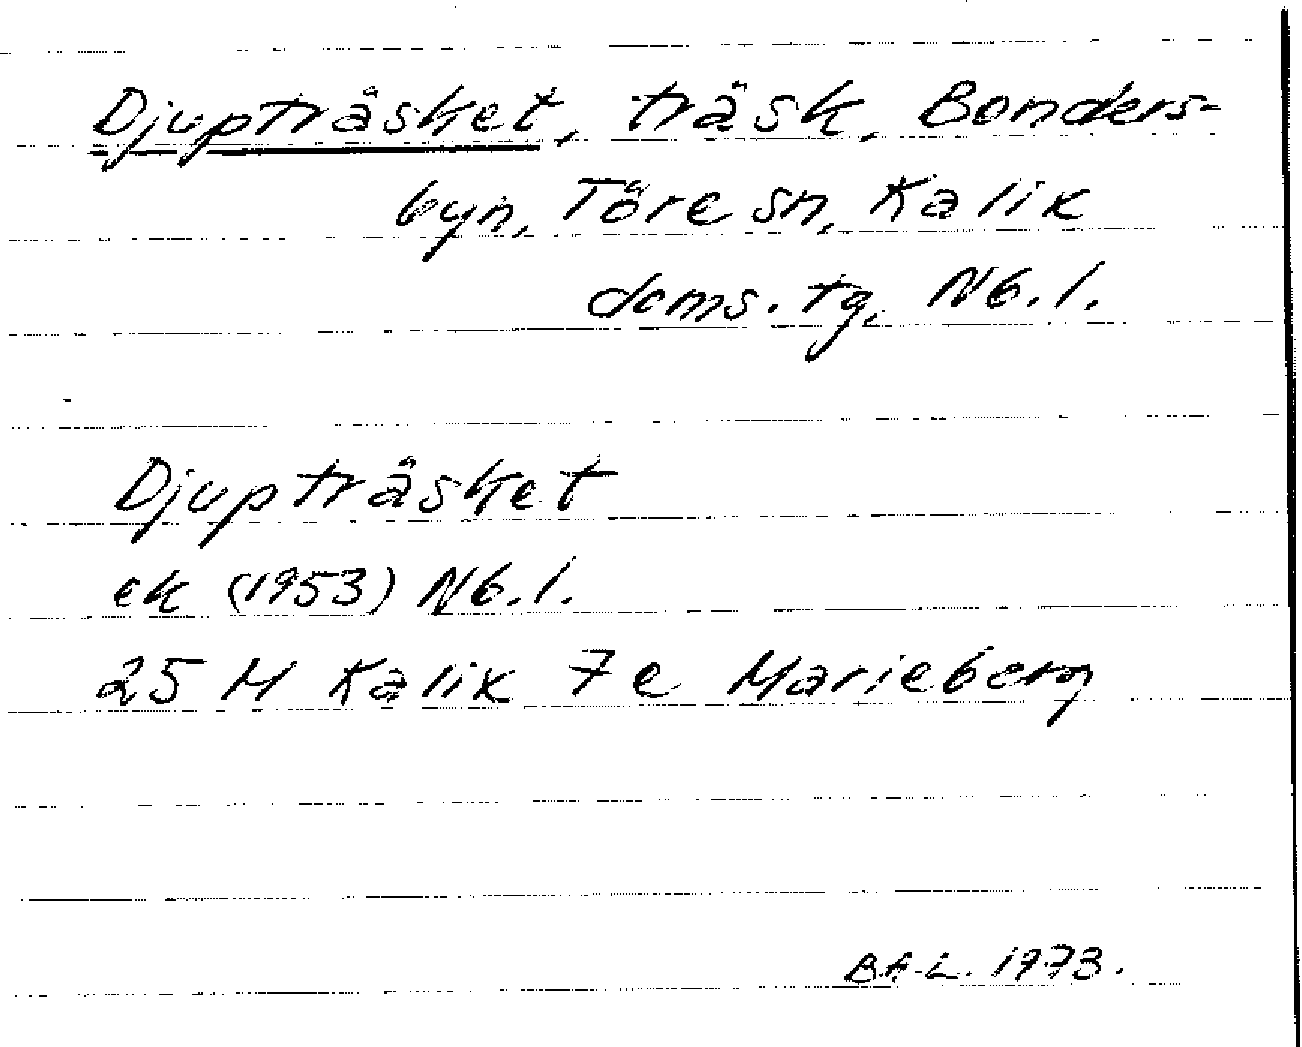 Djupträsket, träsk, Bonders-
byn, Töre sn, Kalix
doms. tg, Nb. l.
Djupträsket
ek (1953) Nb. l.
25 M Kalix 7e Marieberg
B.A-L. 1973.